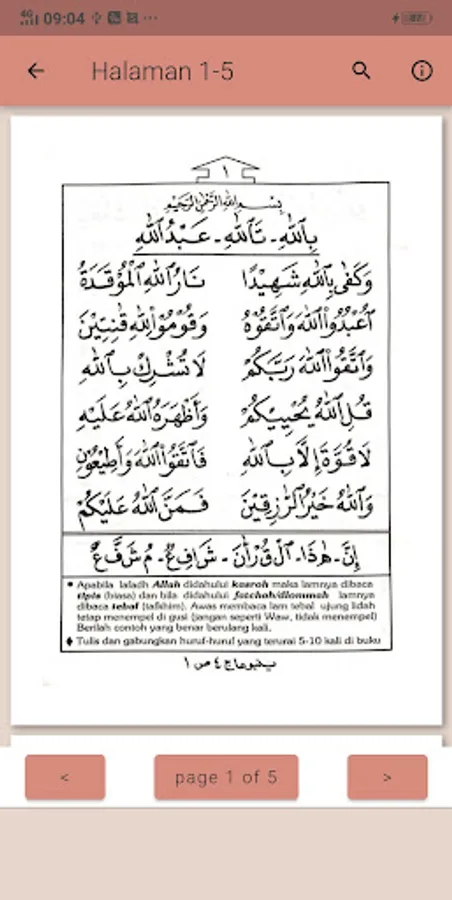 4G 09:04 87
Halaman 1-5
١
بِسْمِ اللهِ الرَّحْمٰنِ الرَّحِيْمِ
بِٱللهِ - تَٱللهِ - عَبْدُ ٱللهِ
وَكَفٰى بِٱللهِ شَهِيْدًا نَارُ ٱللهِ ٱلْمُوْقَدَةُ
اُعْبُدُوا ٱللهَ وَٱتَّقُوْهُ وَقُوْمُوْا لِلهِ قٰنِتِيْنَ
وَٱتَّقُوا ٱللهَ رَبَّكُمْ لَا تُشْرِكْ بِٱللهِ
قُلِ ٱللهُ يُحْيِيْكُمْ وَأَظْهَرَهُ ٱللهُ عَلَيْهِ
لَا قُوَّةَ إِلَّا بِٱللهِ فَٱتَّقُوا ٱللهَ وَأَطِيْعُوْنِ
وَٱللهُ خَيْرُ ٱلرّٰزِقِيْنَ فَمَنَّ ٱللهُ عَلَيْكُمْ
إِنَّ - هٰذَا - ٱلْقُرْاٰنَ - شَافِعٌ - مُشَفَّعٌ
• Apabila laladh Allah didahului kasroh maka lamnya dibaca
tipis (biasa) dan bila didahului fatchah/dlommah lamnya
dibaca tebal (tafkhim). Awas membaca lam tebal ujung lidah
tetap menempel di gusi (jangan seperti Waw, tidak menempel)
Berilah contoh yang benar berulang kali.
♦ Tulis dan gabungkan huruf-huruf yang terurai 5-10 kali di buku
ج ٤ ص ١
< page 1 of 5 >